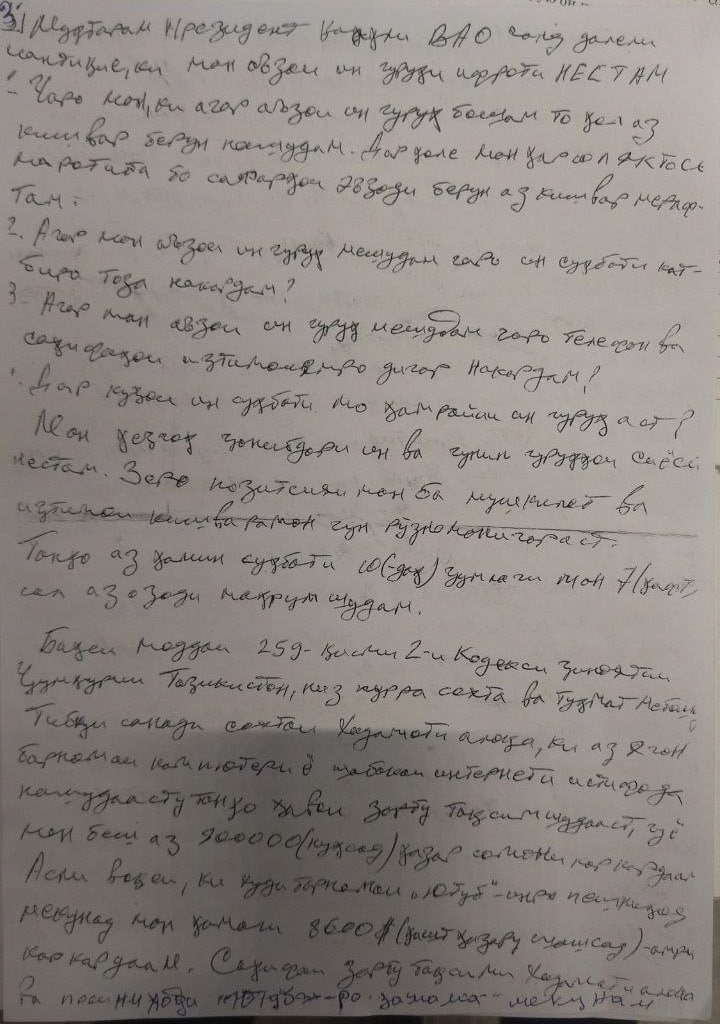 3
Муҳтарам Президент ҳамчун ВАО чанд далели
мантиқие, ки ман аъзои ин гурӯҳи ифротӣ НЕСТАМ
1. Чаро ман, ки агар аъзои ин гурӯҳ бошам то ҳол аз
кишвар берун нашудам. Дар ҳоле ман ҳар сол якто се
маротиба бо сафарҳои озоди берун аз кишвар мераф-
там.
2. Агар ман аъзои ин гурӯҳ мешудам чаро ин сӯҳбати кат-
биро тоза накардам?
3. Агар ман аъзои ин гурӯҳ мешудам чаро телефон ва
саҳифаҳои иҷтимоиямро дигар накардам?
Дар куҷои ин сӯҳбати мо ҳамроҳии ин гурӯҳ аст?
Ман ҳеҷгоҳ ҷонибдори ин ва чунин гурӯҳҳои сиёсӣ
нестам. Зеро позитсияи ман ба мушкилот ва
иҷтимои кишварамон чун рӯзноманигор аст.
Танҳо аз ҳамин сӯҳбати 10(-даҳ) ҷумлаги ман 7(ҳафт)
сол аз озоди маҳрум шудам.
Баҳси моддаи 259- қисми 2-и Кодекси ҷиноятии
Ҷумҳурии Тоҷикистон, низ пурра сохта ва туҳмат мебошад
Тибқи санади сохтаи Хадамоти алоқа, ки аз ягон
барномаи компютерӣ ё шабакаи интернетӣ истифода
нашудаасту танҳо ҳавоӣ зарбу тақсим шудааст, гӯё
ман беш аз 900000(нӯҳсад) ҳазар сомонӣ кор кардаам
Асли воқеи, ки худи барномаи „Ютуб"-инро пешниҳод
мекунад ман ҳамаги 8600$(ҳашт ҳазару шашсад)-
кор кардаам. Саҳифаи зарбу тақсими Хадамоти алоқа
ва „Ютуб"-ро замима мекунам